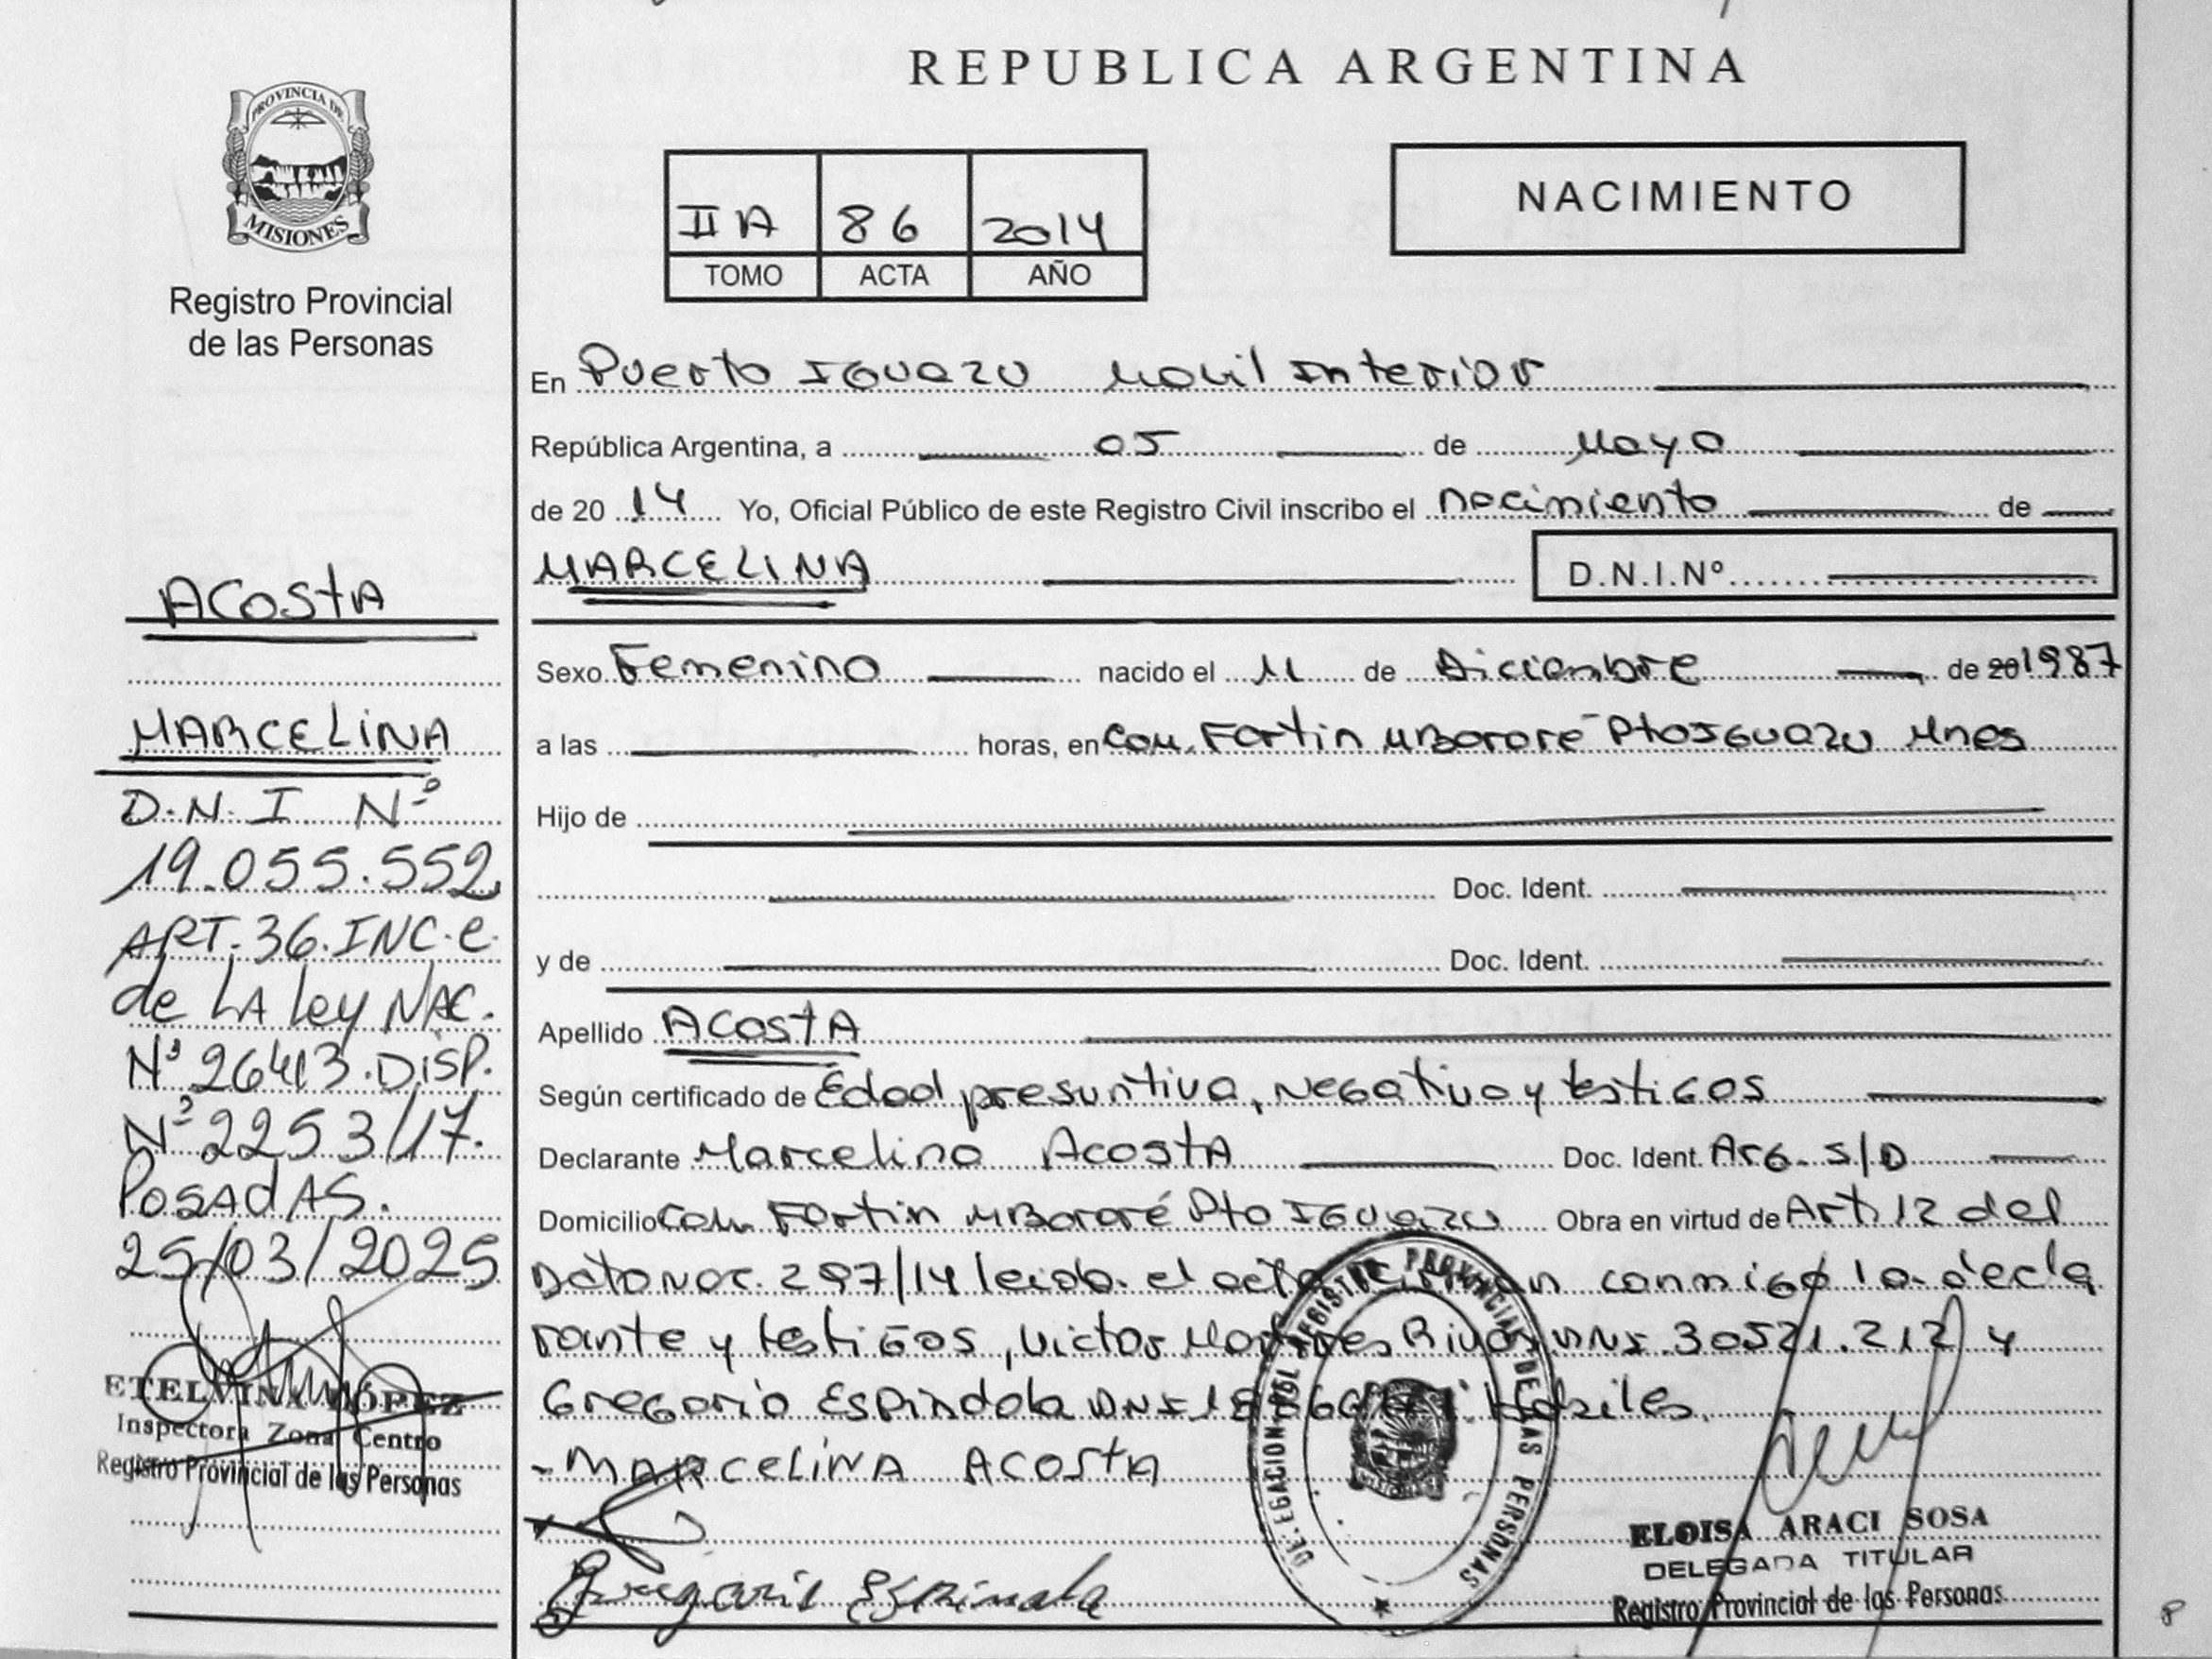 REPUBLICA ARGENTINA
PROVINCIA DE
MISIONES
Registro Provincial
de las Personas
II A 86 2014
TOMO ACTA AÑO
NACIMIENTO
En Puerto Iguazu Movil Interior
República Argentina, a 05 de Mayo
de 2014 Yo, Oficial Público de este Registro Civil inscribo el nacimiento de
MARCELINA D.N.I.Nº
Sexo Femenino nacido el 11 de Diciembre de 20 1987
a las horas, en Com. Fortin MBororé Pto Iguazu Mnes
Hijo de
Doc. Ident.
y de Doc. Ident.
Apellido ACOSTA
Según certificado de Edad presuntiva, Negativo y testigos
Declarante Marcelina Acosta Doc. Ident. Arg. S/D
Domicilio Com Fortin MBororé Pto Iguazu Obra en virtud de Art. 12 del
Dcto Nac. 297/14 leida el acta conmigo la decla
rante y testigos, Victor Rivas DNI 30521.212 y
Gregorio Espindola DNI Habiles.
- MARCELINA ACOSTA
Gregorio Espindola
ACOSTA
MARCELINA
D.N.I Nº
19.055.552
ART. 36. INC. C.
de LA Ley NAC.
Nº 26413. DISP.
Nº 2253/17.
POSADAS.
25/03/2025
ETELVINA LÓPEZ
Inspectora Zona Centro
Registro Provincial de las Personas
REGISTRO PROVINCIAL DE LAS PERSONAS
ELOISA ARACI SOSA
DELEGADA TITULAR
Registro Provincial de las Personas